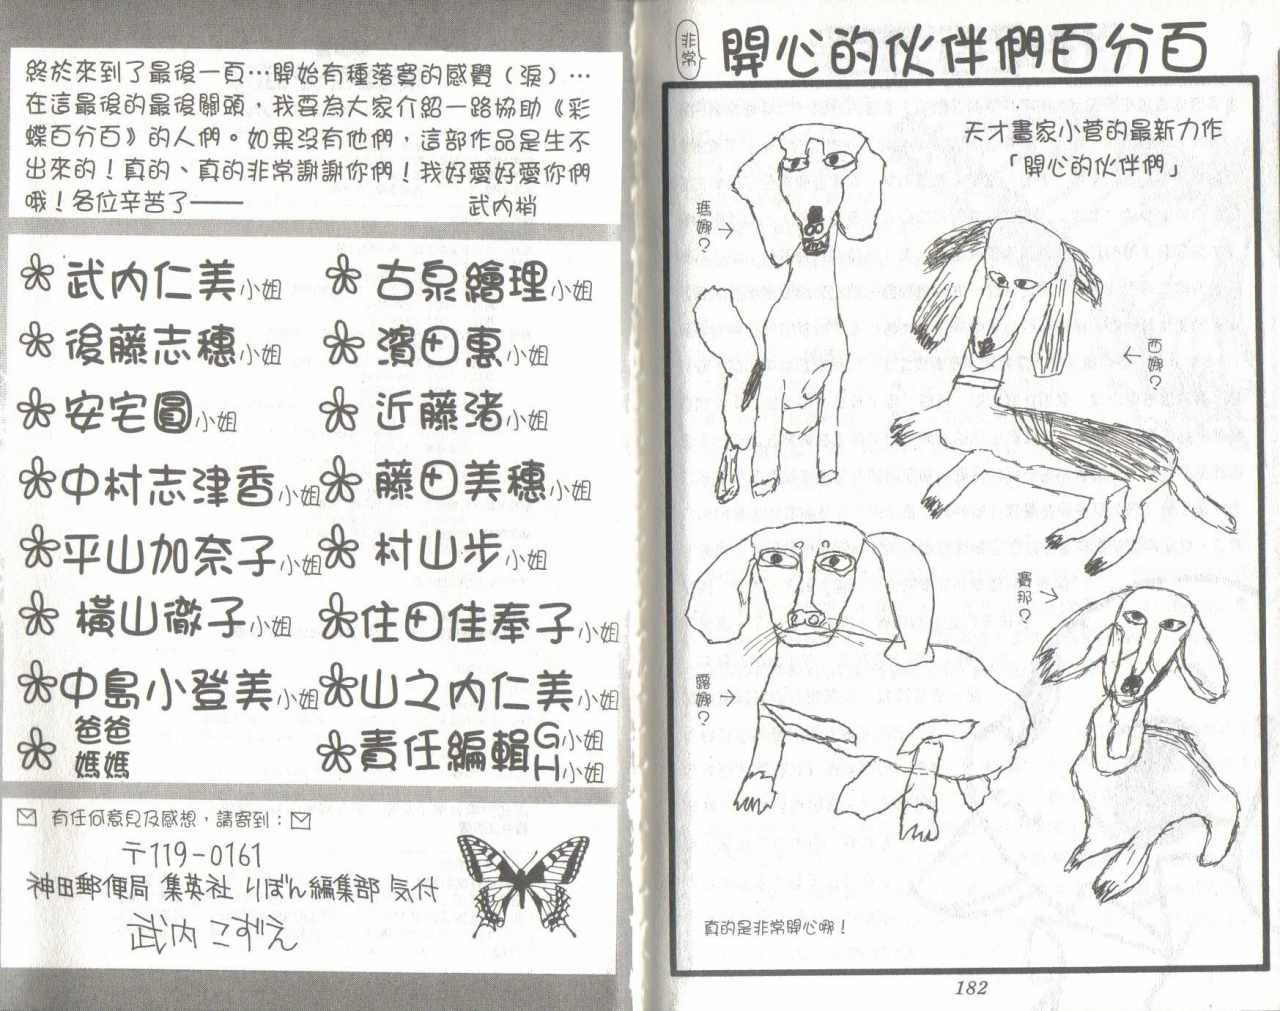 非常
開心的伙伴們百分百
天才畫家小菅的最新力作
「開心的伙伴們」
瑪娜？
西娜？
賓那？
露娜？
真的是非常開心哪！
182
終於來到了最後一頁…開始有種落寞的感覺（淚）…
在這最後的最後關頭，我要為大家介紹一路協助《彩
蝶百分百》的人們。如果沒有他們，這部作品是生不
出來的！真的、真的非常謝謝你們！我好愛好愛你們
哦！各位辛苦了——
武內梢
武內仁美小姐 古泉繪理小姐
後藤志穗小姐 濱田惠小姐
安宅圓小姐 近藤渚小姐
中村志津香小姐 藤田美穗小姐
平山加奈子小姐 村山步小姐
橫山徹子小姐 住田佳奉子小姐
中島小登美小姐 山之內仁美小姐
爸爸
媽媽
責任編輯 G小姐
H小姐
有任何意見及感想，請寄到：
〒119-0161
神田郵便局 集英社 りぼん編集部 気付
武内こずえ